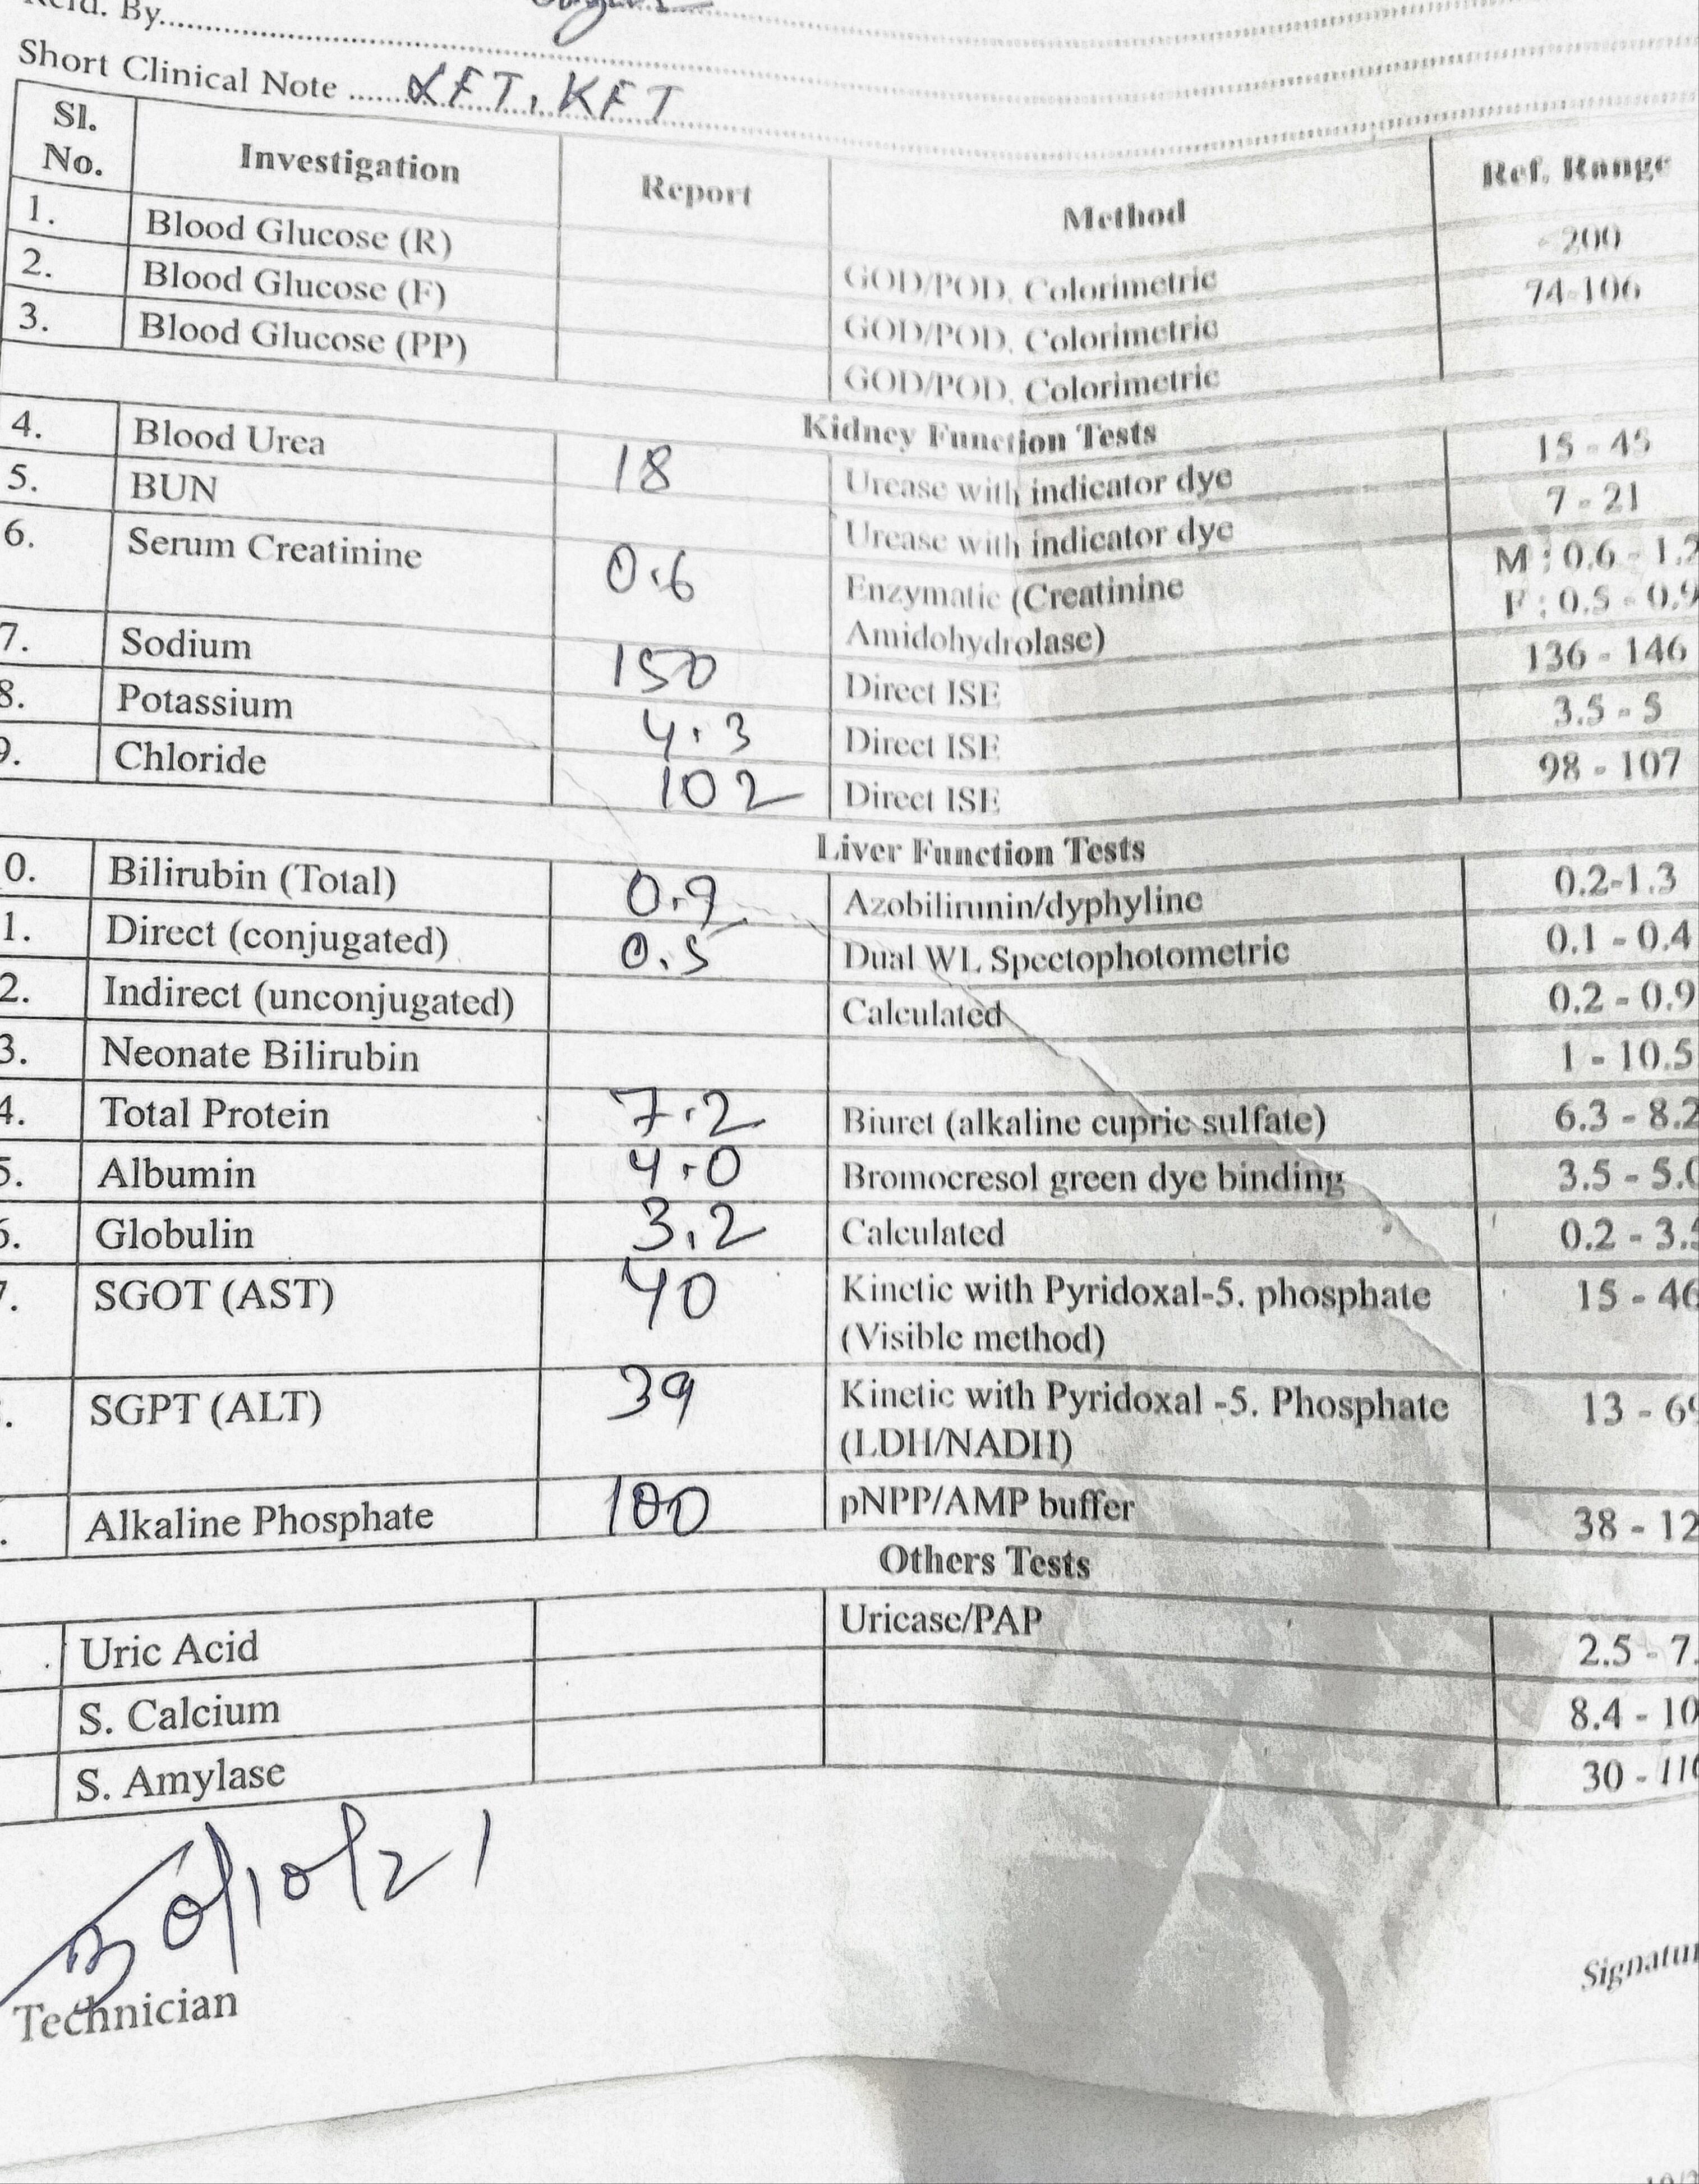 By
Short Clinical Note LFT, KFT
Sl. No. Investigation Report Method Ref. Range
1. Blood Glucose (R) GOD/POD, Colorimetric 200
2. Blood Glucose (F) GOD/POD, Colorimetric 74-106
3. Blood Glucose (PP) GOD/POD, Colorimetric
Kidney Function Tests
4. Blood Urea 18 Urease with indicator dye 15 - 45
5. BUN Urease with indicator dye 7 - 21
6. Serum Creatinine 0.6 Enzymatic (Creatinine Amidohydrolase) M : 0.6 - 1.2 F : 0.5 - 0.9
7. Sodium 150 Direct ISE 136 - 146
8. Potassium 4.3 Direct ISE 3.5 - 5
9. Chloride 102 Direct ISE 98 - 107
Liver Function Tests
0. Bilirubin (Total) 0.9 Azobilirunin/dyphyline 0.2-1.3
1. Direct (conjugated) 0.5 Dual WL Spectophotometric 0.1 - 0.4
2. Indirect (unconjugated) Calculated 0.2 - 0.9
3. Neonate Bilirubin 1 - 10.5
4. Total Protein 7.2 Biuret (alkaline cupric sulfate) 6.3 - 8.2
5. Albumin 4.0 Bromocresol green dye binding 3.5 - 5.0
6. Globulin 3.2 Calculated 0.2 - 3.5
7. SGOT (AST) 40 Kinetic with Pyridoxal-5. phosphate (Visible method) 15 - 46
. SGPT (ALT) 39 Kinetic with Pyridoxal -5. Phosphate (LDH/NADH) 13 - 69
. Alkaline Phosphate 100 pNPP/AMP buffer 38 - 12
Others Tests
Uric Acid Uricase/PAP 2.5 - 7.
S. Calcium 8.4 - 10
S. Amylase 30 - 110
30/10/21
Technician
Signatur